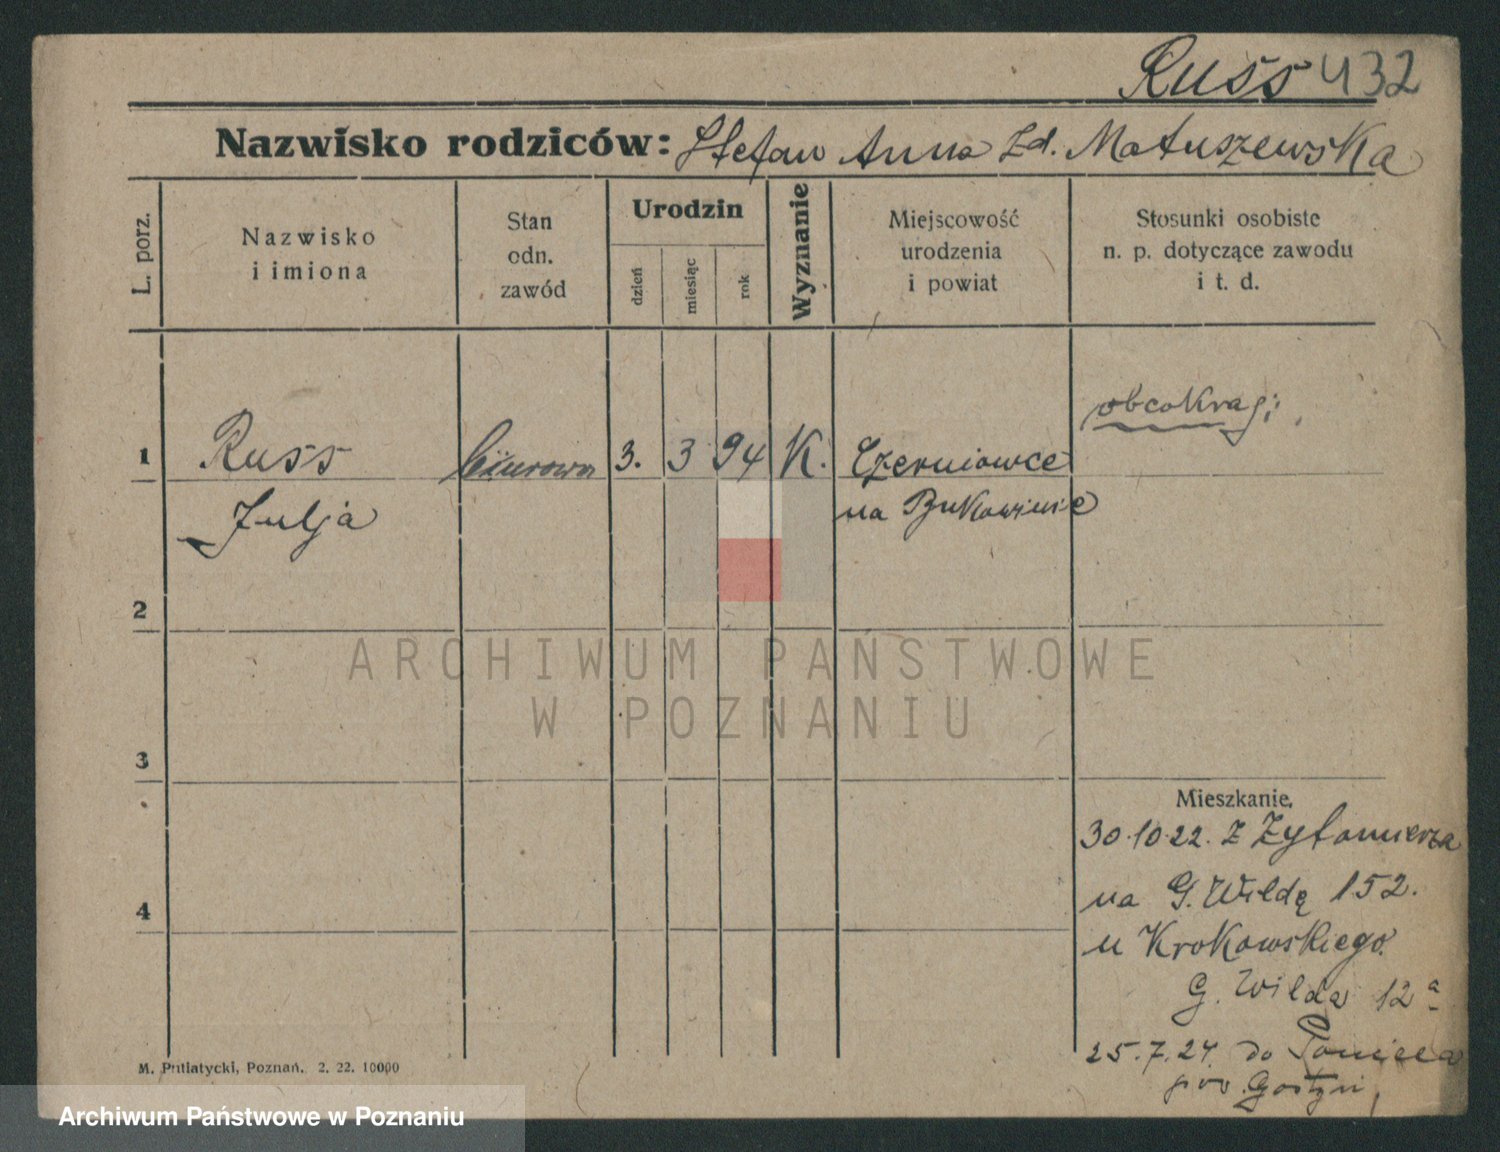 Russ 432
Nazwisko rodziców: Stefan Anna Zd. Matuszewska
L. porz.
Nazwisko
i imiona
Stan
odn.
zawód
Urodzin
dzień
miesiąc
rok
Wyznanie
Miejscowość
urodzenia
i powiat
Stosunki osobiste
n. p. dotyczące zawodu
i t. d.
obcokraj:
1 Russ biurowa 3. 3 94 K. Czerniowce
Julja na Bukowinie
2
ARCHIWUM PAŃSTWOWE
W POZNANIU
3
Mieszkanie.
30.10.22. z Zytomierza
4 na G. Wildę 152.
u Krokowskiego.
G. Wilda 12a
25.7.24. do Ponieca
pow. Gostyń
M. Putiatycki, Poznań. 2. 22. 10000
Archiwum Państwowe w Poznaniu